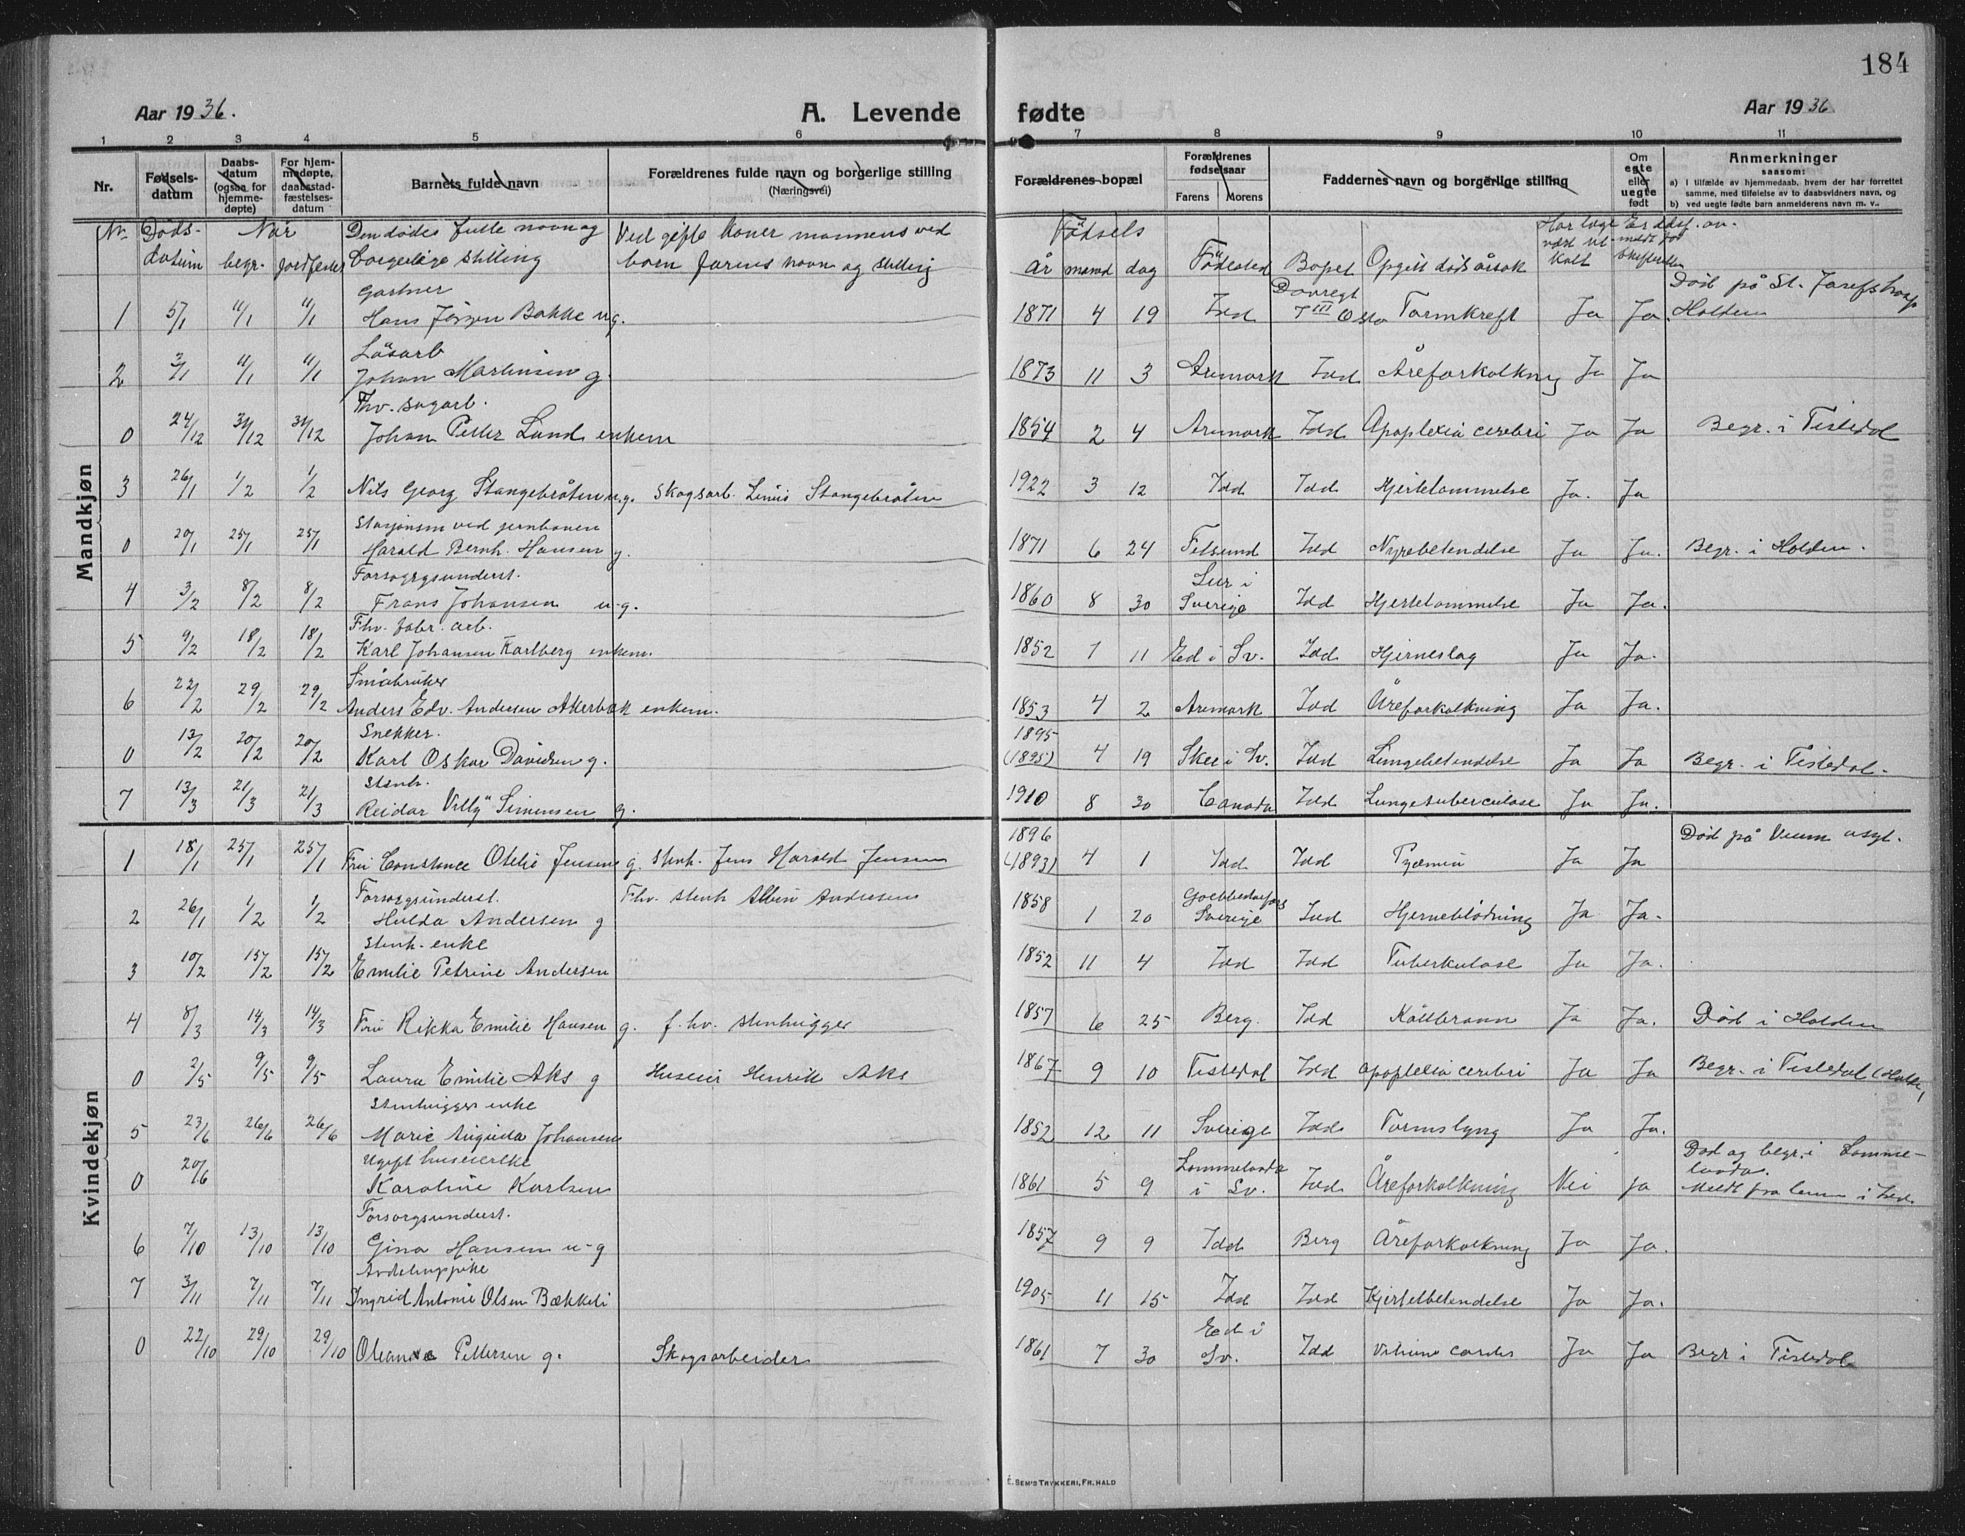 184
Aar 1936.
A. Levende fødte
Aar 1936
1 2 3 4 5 6 7 8 9 10 11
Nr.
Fødselsdatum
Daabsdatum (ogsaa for hjemmedøpte)
For hjemmedøpte, daabsstadfæstelsesdatum
Barnets fulde navn
Forældrenes fulde navn og borgerlige stilling (Næringsvei)
Forældrenes bopæl
Forældrenes fødselsaar
Farens Morens
Faddernes navn og borgerlige stilling
Om egte eller uegte født
Anmerkninger
saasom:
a) I tilfælde av hjemmedaab, hvem der har forrettet samme, med tilføielse av to daabsvidners navn, og
b) ved uegte fødte barn anmelderens navn m. v..
Nr. Døds- Når Den dødes fulle navn og Ved gifte koner mannens ved Fødsels Har læge Er ddsf. an-
datum begr. jordfestet borgerlige stilling barn farens navn og stilling år måned dag Fødested Bopel Opgitt dødsårsak vært til- meldt for
kalt skifteretten
Mandkjøn
Gartner Dovregt Død på St. Josefs hosp
1 5/1 11/1 11/1 Hans Jörgen Bakke ug. 1871 4 19 Idd III Oslo Tarmkreft Ja Ja. Halden
Løsarb
2 3/1 11/1 11/1 Johan Martinsen g. 1873 11 3 Aremark Idd Åreforkalkning Ja Ja
Fhv. sagarb.
0 24/12 31/12 31/12 Johan Petter Lund enkem 1854 2 4 Aremark Idd Apoplexia cerebri Ja Ja Begr. i Tistedal
3 26/1 1/2 1/2 Nils Georg Stangebråten u.g. Skogsarb. Linus Stangebråten 1922 3 12 Idd Idd Hjertelammelse Ja. Ja
Stasjonsm ved jernbanen
0 20/1 25/1 25/1 Harald Bernh. Hansen g. 1871 6 24 Idd Nyrebetendelse Ja Ja. Begr. i Halden.
Forsorgsunderst. Lur i
4 3/2 8/2 8/2 Frans Johansen u-g. 1860 8 30 Sverige Idd Hjertelammelse Ja Ja.
Fhv. fabr. arb.
5 9/2 18/2 18/2 Karl Johansen Karlberg enkem. 1852 7 11 Ed i Sv. Idd Hjerneslag Ja Ja.
Småbruker
6 22/2 29/2 29/2 Anders Edv. Andersen Akerbæk enkem. 1853 4 2 Aremark Idd Åreforkalkning Ja Ja.
Snekker. 1895
0 13/2 20/2 20/2 Karl Oskar Davidsen g. (1895) 4 19 Skee i Sv. Idd Lungebetendelse Ja Ja Begr. i Tistedal.
Stenh.
7 13/3 21/3 21/3 Reidar "Villy" Simensen g. 1910 8 30 Canada Idd Lungetuberculose Ja Ja.
Kvindekjøn
1896 Død på Veum asyl.
1 18/1 25/1 25/1 Fru Constance Otelie Jensen g. Stenh. Jens Harald Jensen (1893) 4 1 Idd Idd Pyæmia Ja Ja
Forsorgsunderst. Fhv. stenh Albin Andersen
2 26/1 1/2 1/2 Hulda Andersen g 1858 1 20 Sverige Idd Hjerneblødning Ja Ja.
Stenh. enke
3 10/2 15/2 15/2 Emilie Petrine Andersen 1852 11 4 Idd Idd Tuberkulose Ja Ja.
4 8/3 14/3 14/3 Fru Rikka Emilie Hansen g. f. hv. stenhugger 1857 6 25 Berg. Idd Koldbrann Ja Ja. Død i Halden
0 2/5 9/5 9/5 Laura Emilie Aks g Huseier Henrik Aks 1867 9 10 Tistedal Idd Apoplexia cerebri Ja Ja Begr. i Tistedal
Stenhuggerenke
5 23/6 26/6 26/6 Marie Augusta Johansen 1852 12 11 Sverige Idd Tarmslyng Ja Ja.
Ugift huseierske Lommelanda Død og begr. i Lomme-
0 20/6 Karoline Karlsen 1861 5 9 i Sv. Idd Åreforkalkning Nei ja landa.
Meldt fra lensm i Idd.
Forsorgsunderst.
6 7/10 13/10 13/10 Gina Hansen u-g 1857 9 9 Idd Berg Åreforkalkning Ja Ja.
7 3/11 7/11 7/11 Ingrid Antonie Olsen Bækkeli 1905 11 15 Idd Idd Hjertebetendelse Ja Ja.
Ed i
0 22/10 29/10 29/10 Pettersen g. Skogsarbeider 1861 7 30 Sv. Idd Vitium cordis Ja Ja Begr i Tistedal
E. SEM'S TRYKKERI, FR. HALD